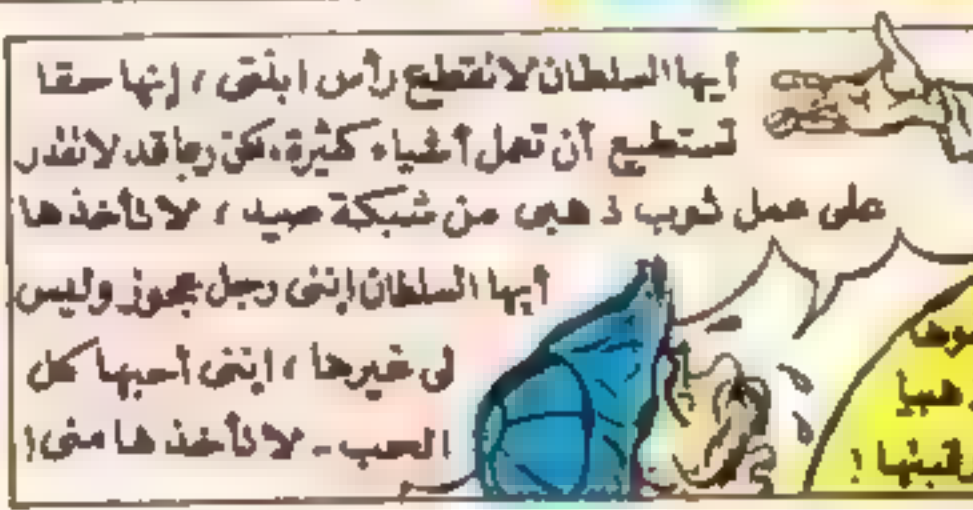 أيها السلطان لا تقطع رأس ابنتى ، إنها حقا
تستطيع أن تعمل أشياء كثيرة، لكن ربما قد لا تقدر
على عمل ثوب ذهبى من شبكة صيد ، لا تأخذها
أيها السلطان إننى رجل عجوز وليس
لى غيرها ، إننى أحبها كل
الحب - لا تأخذها منى !